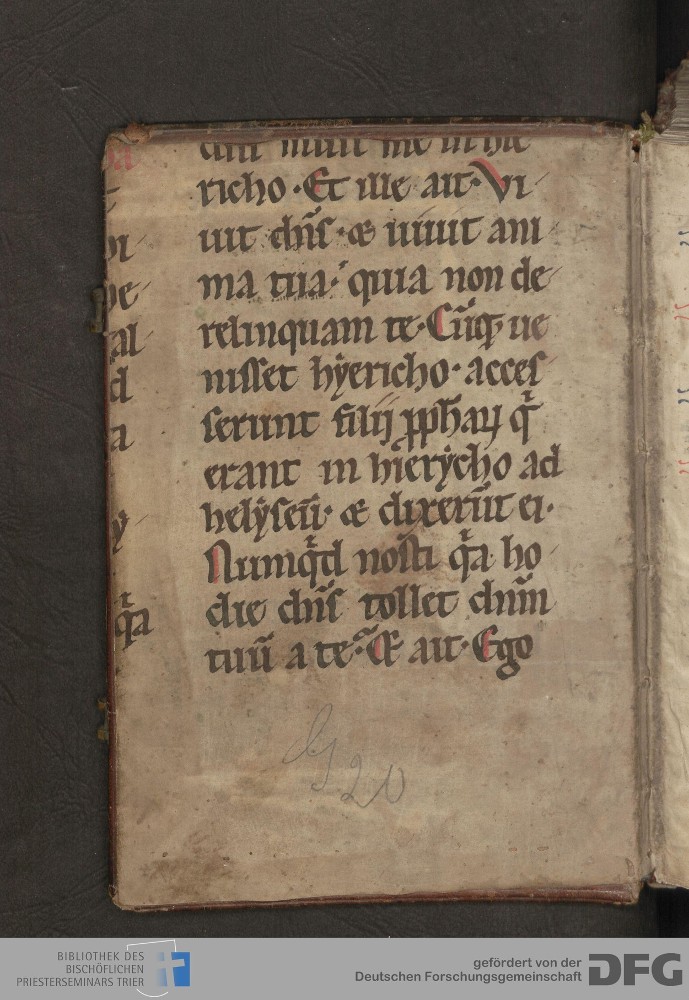 misit me in hie
richo · Et ille ait · Vi
uit dn̄s · ⁊ uiuit ani
ma tua · quia non de
relinquam te · Cūq; ue
nisset hẏericho · acces
serunt filij ꝓph̄aꝝ q̄
erant in hierẏcho ad
helẏseū · ⁊ dixerūt ei ·
Numqͥd nosti qͥa ho
die dn̄s tollet dnm̄
tuū a te · Et ait · Ego
al
d
a
ẏ
qͥa
G 20
BIBLIOTHEK DES
BISCHÖFLICHEN
PRIESTERSEMINARS TRIER
gefördert von der
Deutschen Forschungsgemeinschaft
DFG